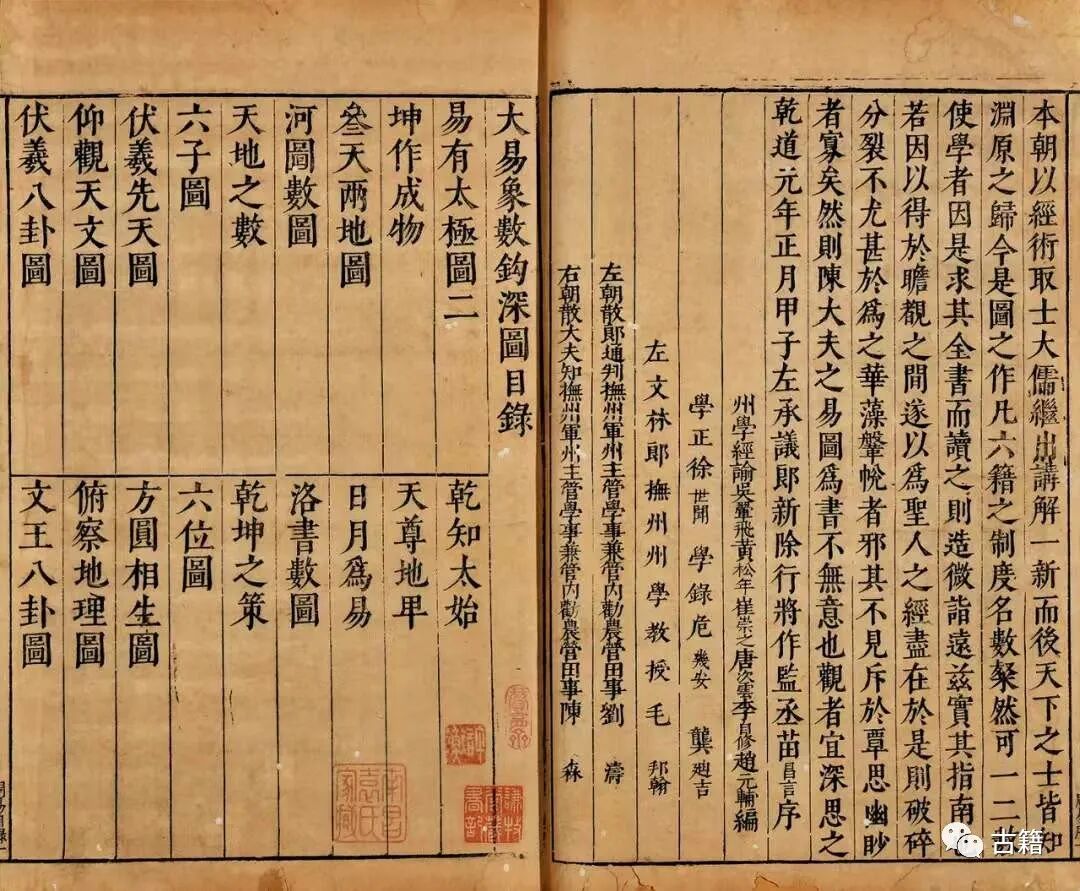 本朝以經術取士大儒繼出講解一新而後天下之士皆知
淵原之歸今是圖之作凡六籍之制度名數粲然可一二
使學者因是求其全書而讀之則造微詣遠兹實其指南
若因以得於瞻觀之間遂以爲聖人之經盡在於是則破碎
分裂不尤甚於爲之華藻鞶帨者邪其不見斥於覃思幽眇
者寡矣然則陳大夫之易圖爲書不無意也觀者宜深思之
乾道元年正月甲子左承議郎新除行將作監丞苗昌言序
州學經諭吳翬飛黃松年崔崇之唐次雲李自修趙元輔編
學正徐世聞 學錄危幾安 龔迪吉
左文林郎撫州州學教授毛邦翰
左朝散郎通判撫州軍州主管學事兼管内勸農營田事劉濤
右朝散大夫知撫州軍州主管學事兼管内勸農營田事陳森
大易象數鈎深圖目錄
易有太極圖二 乾知太始
坤作成物 天尊地卑
叄天兩地圖 日月爲易
河圖數圖 洛書數圖
天地之數 乾坤之策
六子圖 六位圖
伏羲先天圖 方圓相生圖
仰觀天文圖 俯察地理圖
伏羲八卦圖 文王八卦圖
南昌袁氏家藏
謙牧堂書畫記
古籍